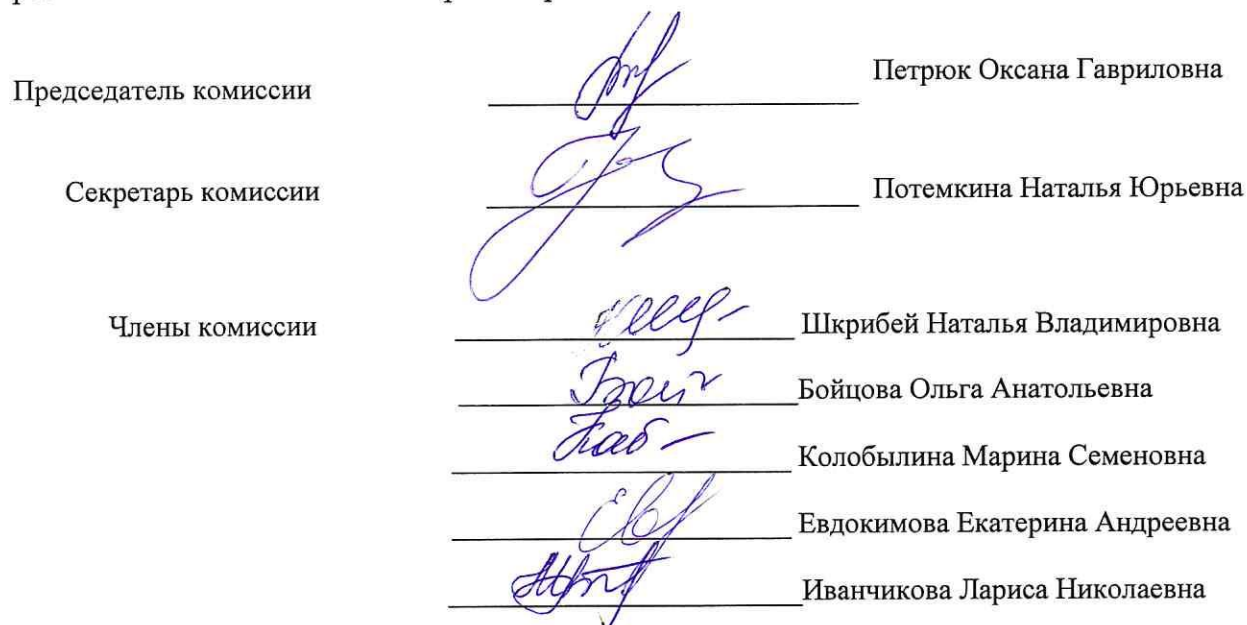 Председатель комиссии Петрюк Оксана Гавриловна
Секретарь комиссии Потемкина Наталья Юрьевна
Члены комиссии Шкрибей Наталья Владимировна
Бойцова Ольга Анатольевна
Колобылина Марина Семеновна
Евдокимова Екатерина Андреевна
Иванчикова Лариса Николаевна